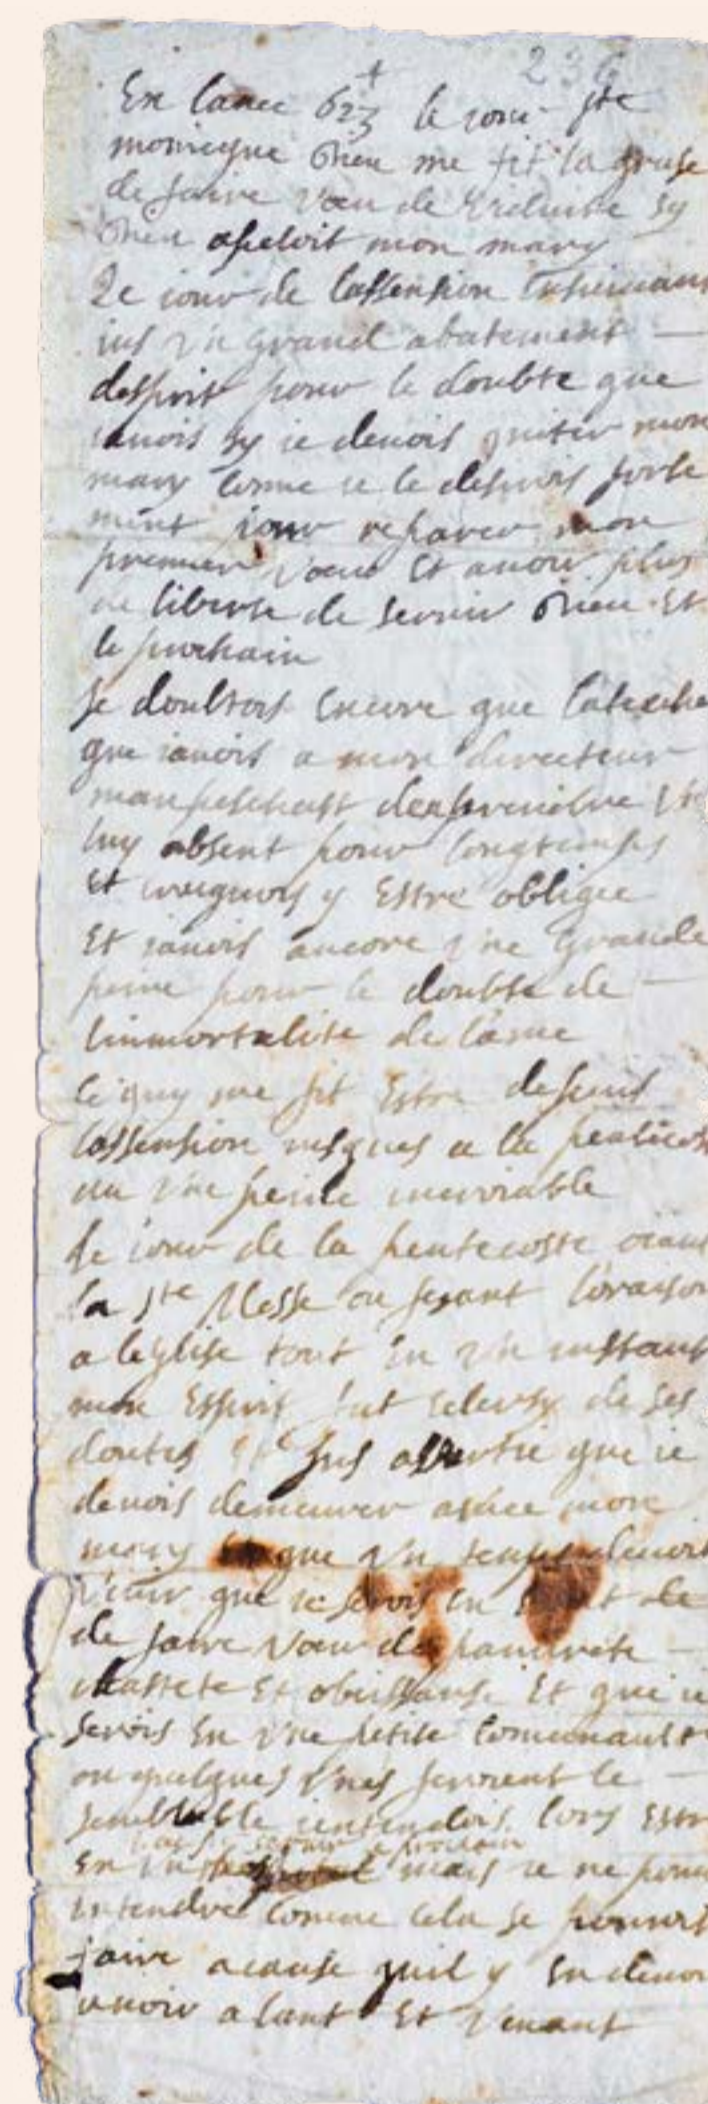 + 236
En lanee 623 le jour Ste
monicque Dieu me fit la grase
de faire voeu de viduite sy
Dieu apeloit mon mary
Le jour de lassension ensuivant
ius un grand abatement —
desprit pour le doubte que
iauois sy ie deuois quiter mon
mary comme ie le desirois forte
ment pour reparer mon
premier voeu Et auoir plus
de liberte de seruir Dieu Et
le prochain
Je doubtois encore que latache
que iauois a mon directeur
manpeschast den prendre
luy absent pour longtemps
Et creignois y Estre obligee
Et iauois ancore vne grande
peine pour le doubte de —
linmortalite de lame
Ce quy me fit Estre depuis
lassension iusques a la pentecoste
en vne peine incroiable
Le iour de la pentecoste oiant
la Ste Messe ou fesant loraison
a leglise tout en vn instant
mon Esprit fut esclercy de ses
doutes Et fus aduertie que ie
deuois demeurer auec mon
mary Et que vn temps deuoit
venir que ie serois en estat de
de faire voeu de pauurete —
chastete Et obeissanse Et que ie
serois En vne petite communaulte
ou quelques vnes feroient le —
semblable ientendois lors Estre
pour seruir le prochain
En vn lieu mais ie ne pouuois
entendre comme cela se pouuoit
faire acause quil y en deuoit
auoir alant Et venant